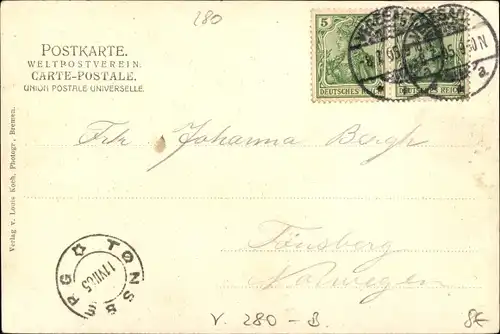 280
POSTKARTE.
WELTPOSTVEREIN.
CARTE-POSTALE.
UNION POSTALE UNIVERSELLE.
5
DEUTSCHES REICH
DEUTSCHES REICH
Verlag v. Louis Koch, Photogr., Bremen.
Frk Johanna Bergh
Tönsberg
Norwegen
TØNSBERG
11 VII 05
V. 280 - B.
8E